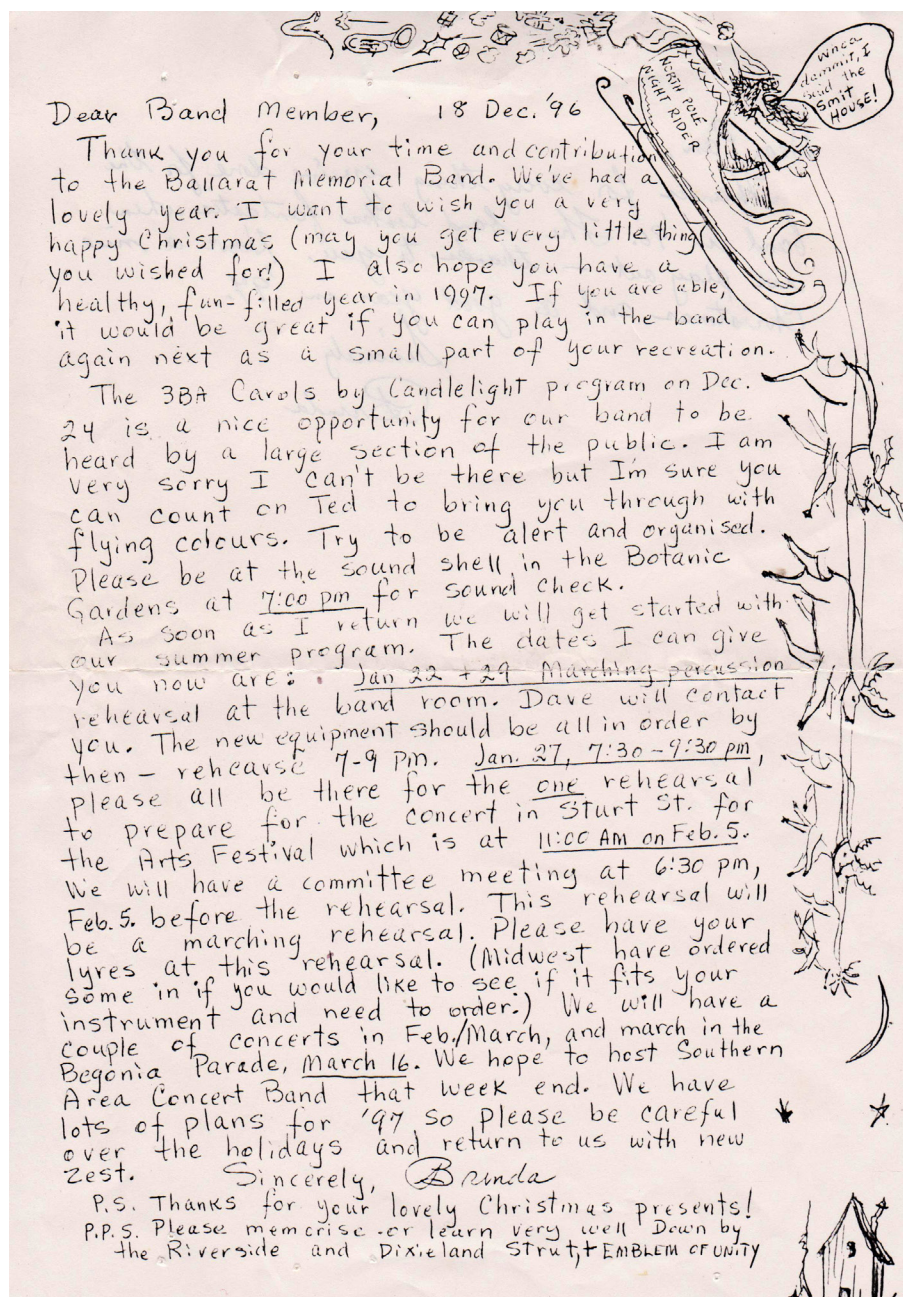 Whoa
dammit, I
said the
SMIT
HOUSE!
NORTH POLE
NIGHT RIDER
Dear Band Member, 18 Dec. '96
Thank you for your time and contribution
to the Ballarat Memorial Band. We've had a
lovely year. I want to wish you a very
happy Christmas (may you get every little thing
you wished for!) I also hope you have a
healthy, fun-filled year in 1997. If you are able,
it would be great if you can play in the band
again next as a small part of your recreation.
The 3BA Carols by Candlelight program on Dec.
24 is a nice opportunity for our band to be
heard by a large section of the public. I am
very sorry I can't be there but I'm sure you
can count on Ted to bring you through with
flying colours. Try to be alert and organised.
Please be at the sound shell in the Botanic
Gardens at 7:00 pm for sound check.
As soon as I return we will get started with
our summer program. The dates I can give
you now are: Jan 22 + 29 Marching percussion
rehearsal at the band room. Dave will contact
you. The new equipment should be all in order by
then - rehearse 7-9 pm. Jan. 27, 7:30-9:30 pm,
please all be there for the one rehearsal
to prepare for the concert in Sturt St. for
the Arts Festival which is at 11:00 AM on Feb. 5.
We will have a committee meeting at 6:30 pm,
Feb. 5. before the rehearsal. This rehearsal will
be a marching rehearsal. Please have your
lyres at this rehearsal. (Midwest have ordered
some in if you would like to see if it fits your
instrument and need to order.) We will have a
couple of concerts in Feb./March, and march in the
Begonia Parade, March 16. We hope to host Southern
Area Concert Band that week end. We have
lots of plans for '97 so please be careful
over the holidays and return to us with new
zest. Sincerely, Brenda
P.S. Thanks for your lovely Christmas presents!
P.P.S. Please memorise or learn very well Down by
the Riverside and Dixieland Strut, + EMBLEM OF UNITY